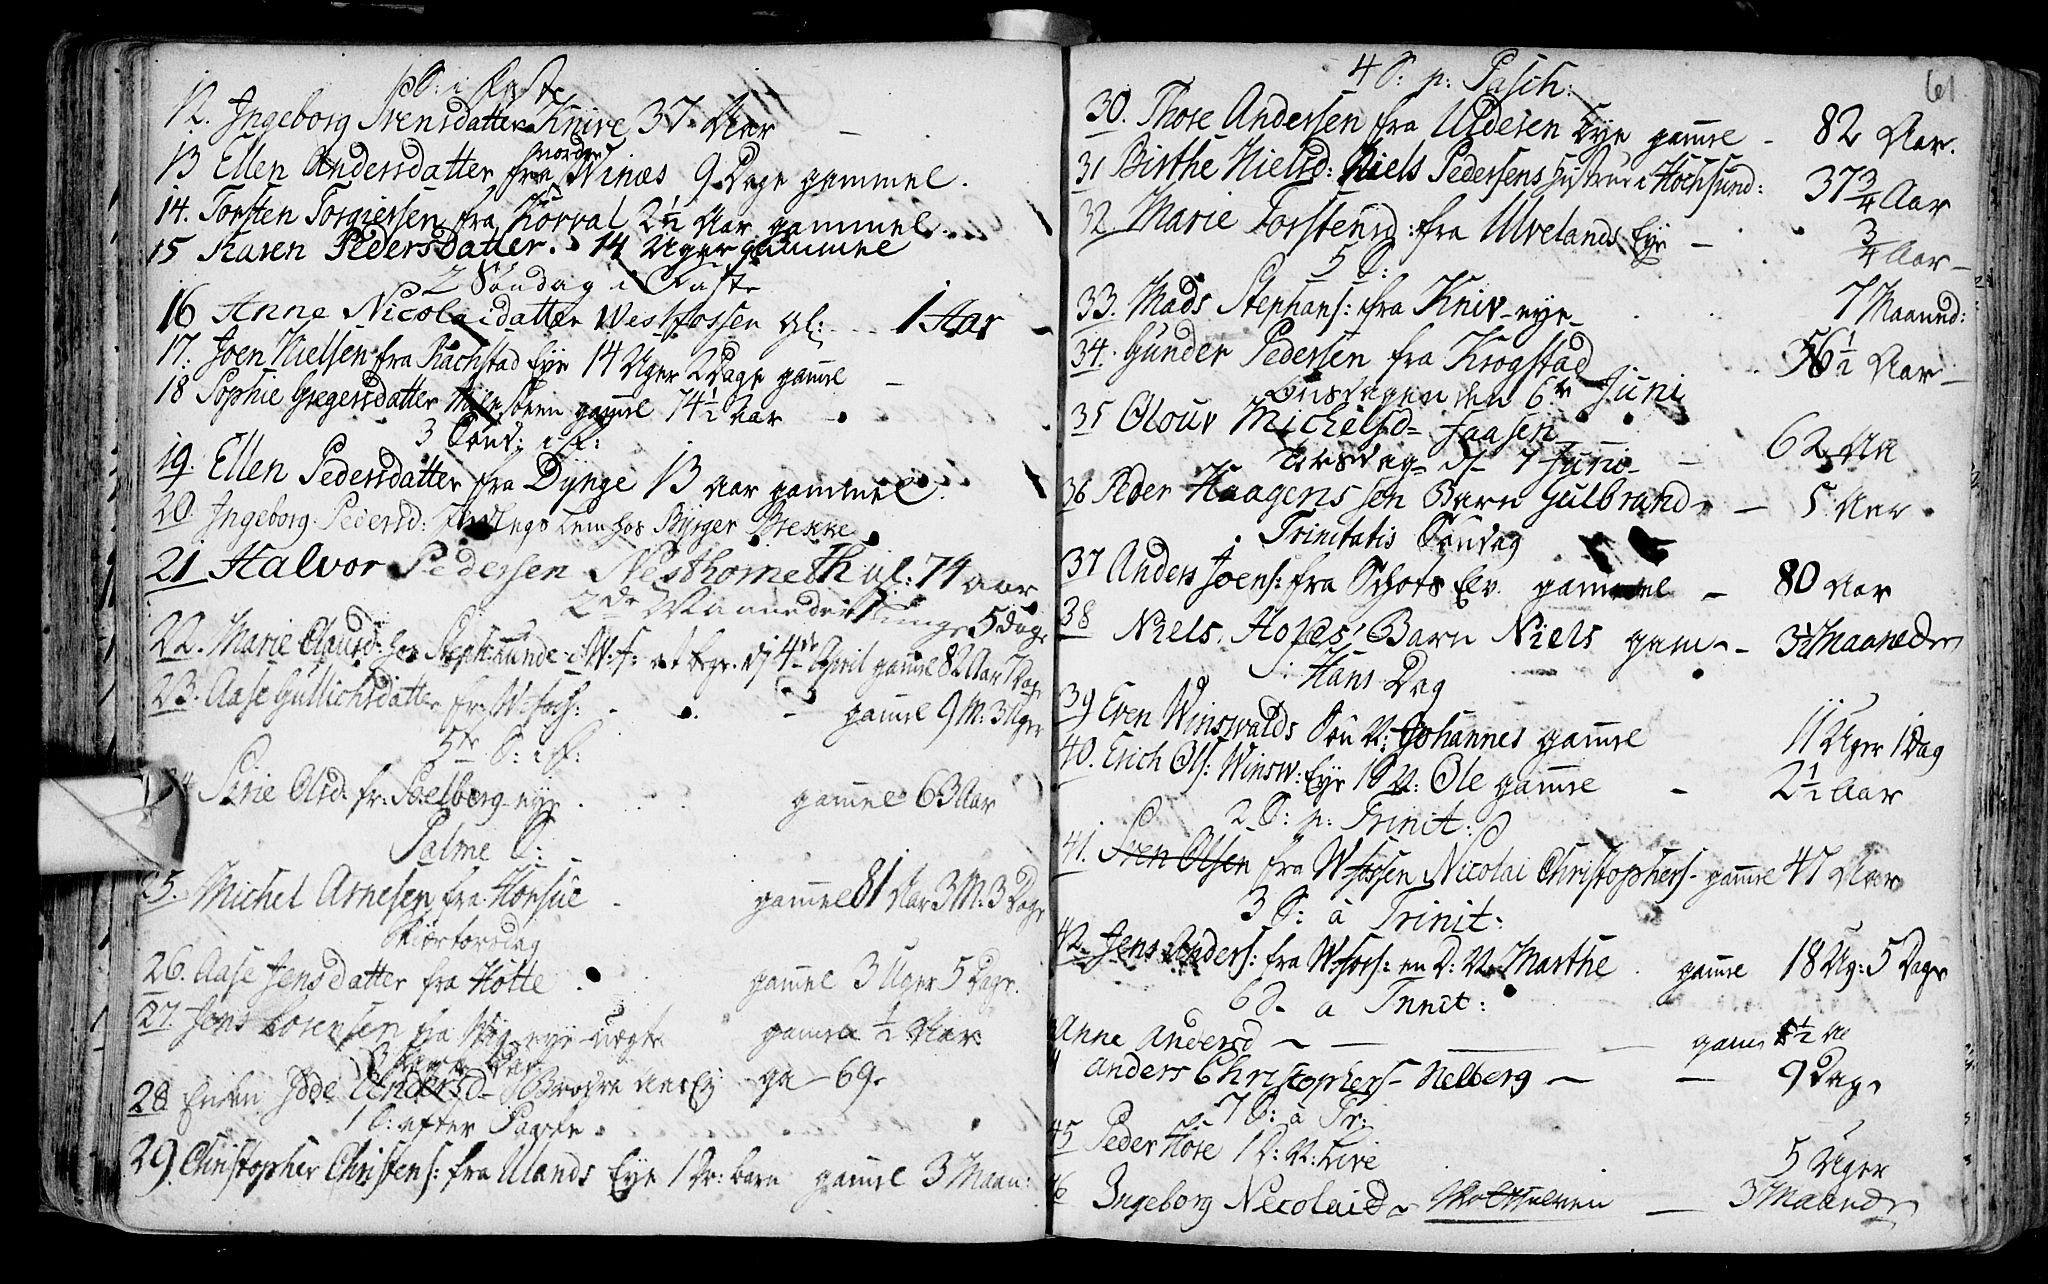 1 S: i Faste
12. Ingeborg Svensdatter Knive 37 Aar
13 Ellen Andersdatter fra nordre Winæs 9 Dage gammel.
14. Torsten Torgiersen fra Korval 2½ Aar gammel
15 Karen Pedersdatter. 14 Uger gammel
2 Søndag i Faste
16 Anne Nicolaidatter Westfossen gl: 1 Aar
17. Joen Nielsen fra Rachstad Eye 14 Uger 2 Dage gamel
18 Sophie Gregersdatter gamel 74½ Aar
3 Sønd: i F:
19. Ellen Pedersdatter fra Dynge 13 Aar gammel.
20. Ingeborg Pedersd: Lem hos Byrger Bekke
21 Halvor Pedersen Næsthorneth gl: 74 aar
2de Maaneder
22. Marie Olausd: hos i W: f: 4de April gamel 82 Aar 1 Dag
23. Aase Gullichsdatter fr: W foss: gamel 9 M: 3 Uger
5te S: i F:
24 Siri Olsd: fr: Soelberg-eye gamel 63 Aar
Palme S:
25. Michel Arnesen fra Horsue gamel 81 Aar 3 M: 3 Dage
Skiertorsdag
26. Aase Jensdatter fra Hotte gamel 3 Uger 5 Dage.
27. Jens Lorensen fra eye uægte gamel ½ Aar
28 Enken Idde Andersd- ga - 69.
1 S: efter Paaske
29. Christopher Christens: fra Ulands Eye barn gamel 3 Maan:
61
4 S: p: Pasch:
30. Thore Andersen fra Uldesen Eye gamel - 82 Aar.
31 Birthe Nielsd: Niels Pedersens Hustrue i Hochsund: 37¾ Aar
32 Marie Torstensd: fra Ulvelands Eye - ¾ Aar -
5 S:
33. Mads Stephans: fra Kniv-eye 7 Maaned:
34. Gunder Pedersen fra Krogstad 56½ Aar -
Onsdagen den 6te Juni
35 Olour Michelsd= Faasen 62 Aa
Torsdag d 7 Juni
36 Peder Haagensson Barn Gulbrand - 5 Aar
Trinitatis Søndag
37 Anders Joens: fra Schots Elv. gammel - 80 Aar
38 Niels Hoses Barn Niels gam - 3½ Maaneder
S: Hans Dag
39 Even Winswalds Søn N: Johannes gamel 11 Uger 1 Dag
40. Erich Ols: Winsw: Eye 1 S N: Ole gamel - 2½ Aar
2 S: p: Trinit:
41. Sven Olsen fra Wfossen Nicolai Christophers- gamel 47 Aar
3 S: a Trinit:
42. Jens Anders: fra Wfoss: en D: N: Marthe gamel 18 Ug: 5 Dage
6 S. a Trinit:
Anne Andersd - gamel ½ Aa
Anders Christophers- Nelberg - 9 Dage
7 S: a Tr:
45 Peder Hose 1 D: N: Live 5 Uger
46 Ingeborg Necolaid - 3 Maaned